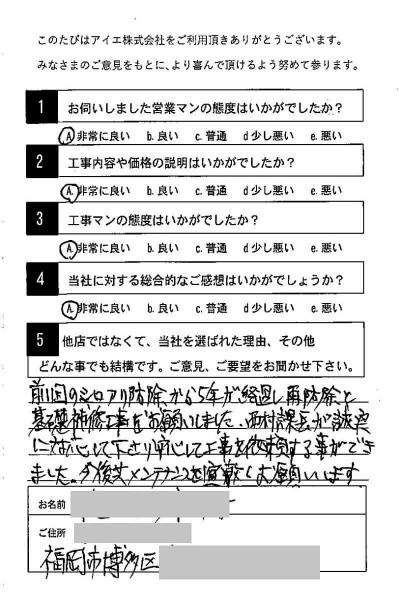 このたびはアイエ株式会社をご利用頂きありがとうございます。
みなさまのご意見をもとに、より喜んで頂けるよう努めて参ります。
1 お伺いしました営業マンの態度はいかがでしたか?
A.非常に良い b.良い c.普通 d少し悪い e.悪い
2 工事内容や価格の説明はいかがでしたか?
A.非常に良い b.良い c.普通 d少し悪い e.悪い
3 工事マンの態度はいかがでしたか?
A.非常に良い b.良い c.普通 d少し悪い e.悪い
4 当社に対する総合的なご感想はいかがでしょうか?
A.非常に良い b.良い c.普通 d少し悪い e.悪い
5 他店ではなくて、当社を選ばれた理由、その他
どんな事でも結構です。ご意見、ご要望をお聞かせ下さい。
前回のシロアリ防除から5年が経過し再防除と
基礎補修工事をお願いしました、西村課長が誠実
に対応して下さり安心して工事を依頼する事ができ
ました。今後共メンテナンスを宜敷くお願いします
お名前
ご住所
福岡市博多区